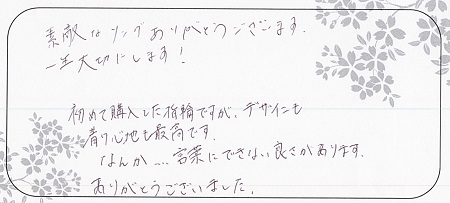 素敵なリングありがとうございます.
一生大切にします!
初めて購入した指輪ですが、デザインも
着け心地も最高です.
なんか....言葉にできない良さがあります.
ありがとうございました.